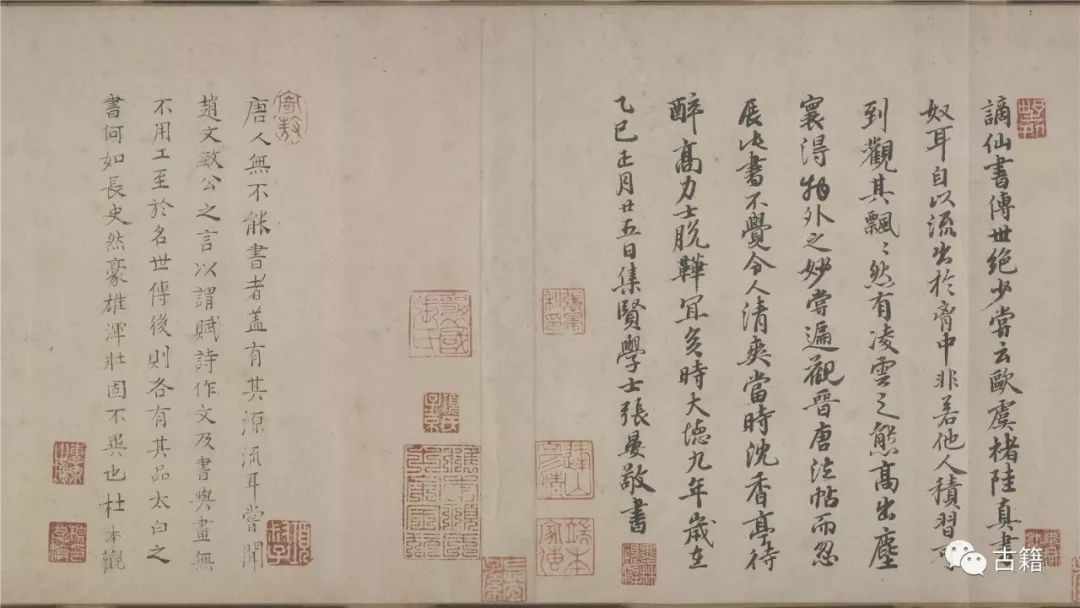 謫仙書傳世絶少嘗云歐虞褚陸真書
奴耳自以流出於胷中非若他人積習可
到觀其飄〻然有凌雲之態高出塵
寰得物外之妙嘗遍觀晋唐法帖而忽
展此書不覺令人清爽當時沈香亭待
醉高力士脱鞾冝矣時大徳九年歲在
乙巳正月廿五日集賢學士張晏敬書
唐人無不能書者盖有其源流耳嘗聞
趙文敏公之言以謂賦詩作文及書與畫無
不用工至於名世傳後則各有其品太白之
書何如長史然豪雄渾壯固不異也杜本觀
古籍